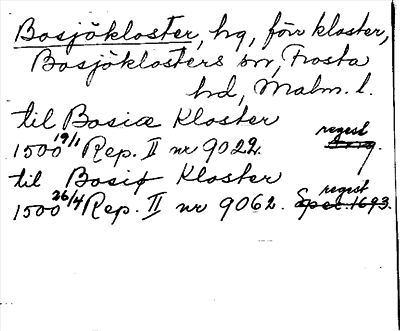 Bosjökloster, hg, förr kloster,
Bosjöklosters sn, Frosta
hd, Malm. l.
til Bosiæ Kloster
1500 19/1 Rep. II nr 9022. regest
til Bosiø Kloster
1500 26/4 Rep. II nr 9062. Spec. 1693. regest